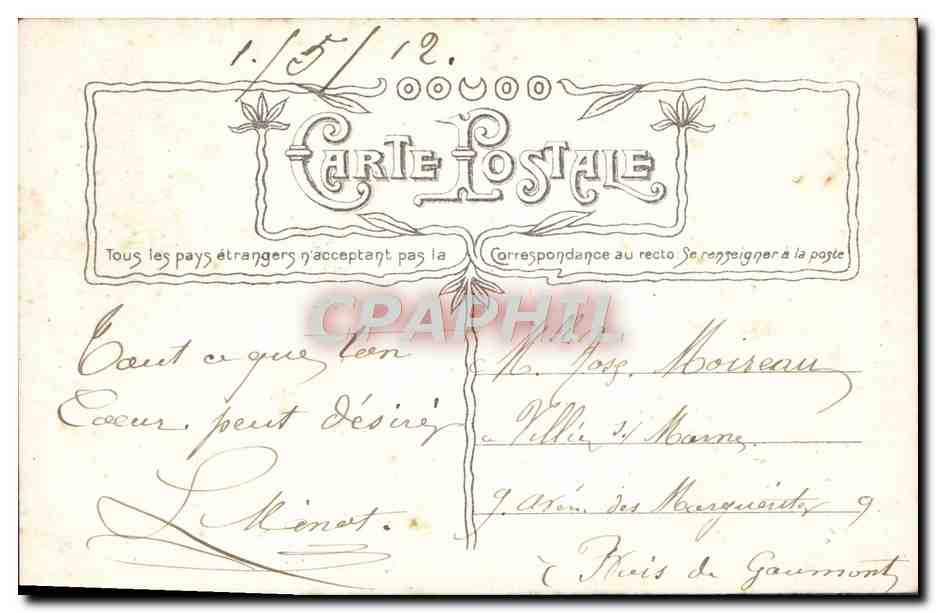 1./5/12.
CARTE POSTALE
Tous les pays étrangers n'acceptant pas la Correspondance au recto Se renseigner à la poste
CPAPHIL
Tout ce que ton
Coeur peut désirer
L Minot.
M. Josp. Moireau
a Villier s/ Marne
9. Aven. des Marguerites 9
Bois de Gaumont